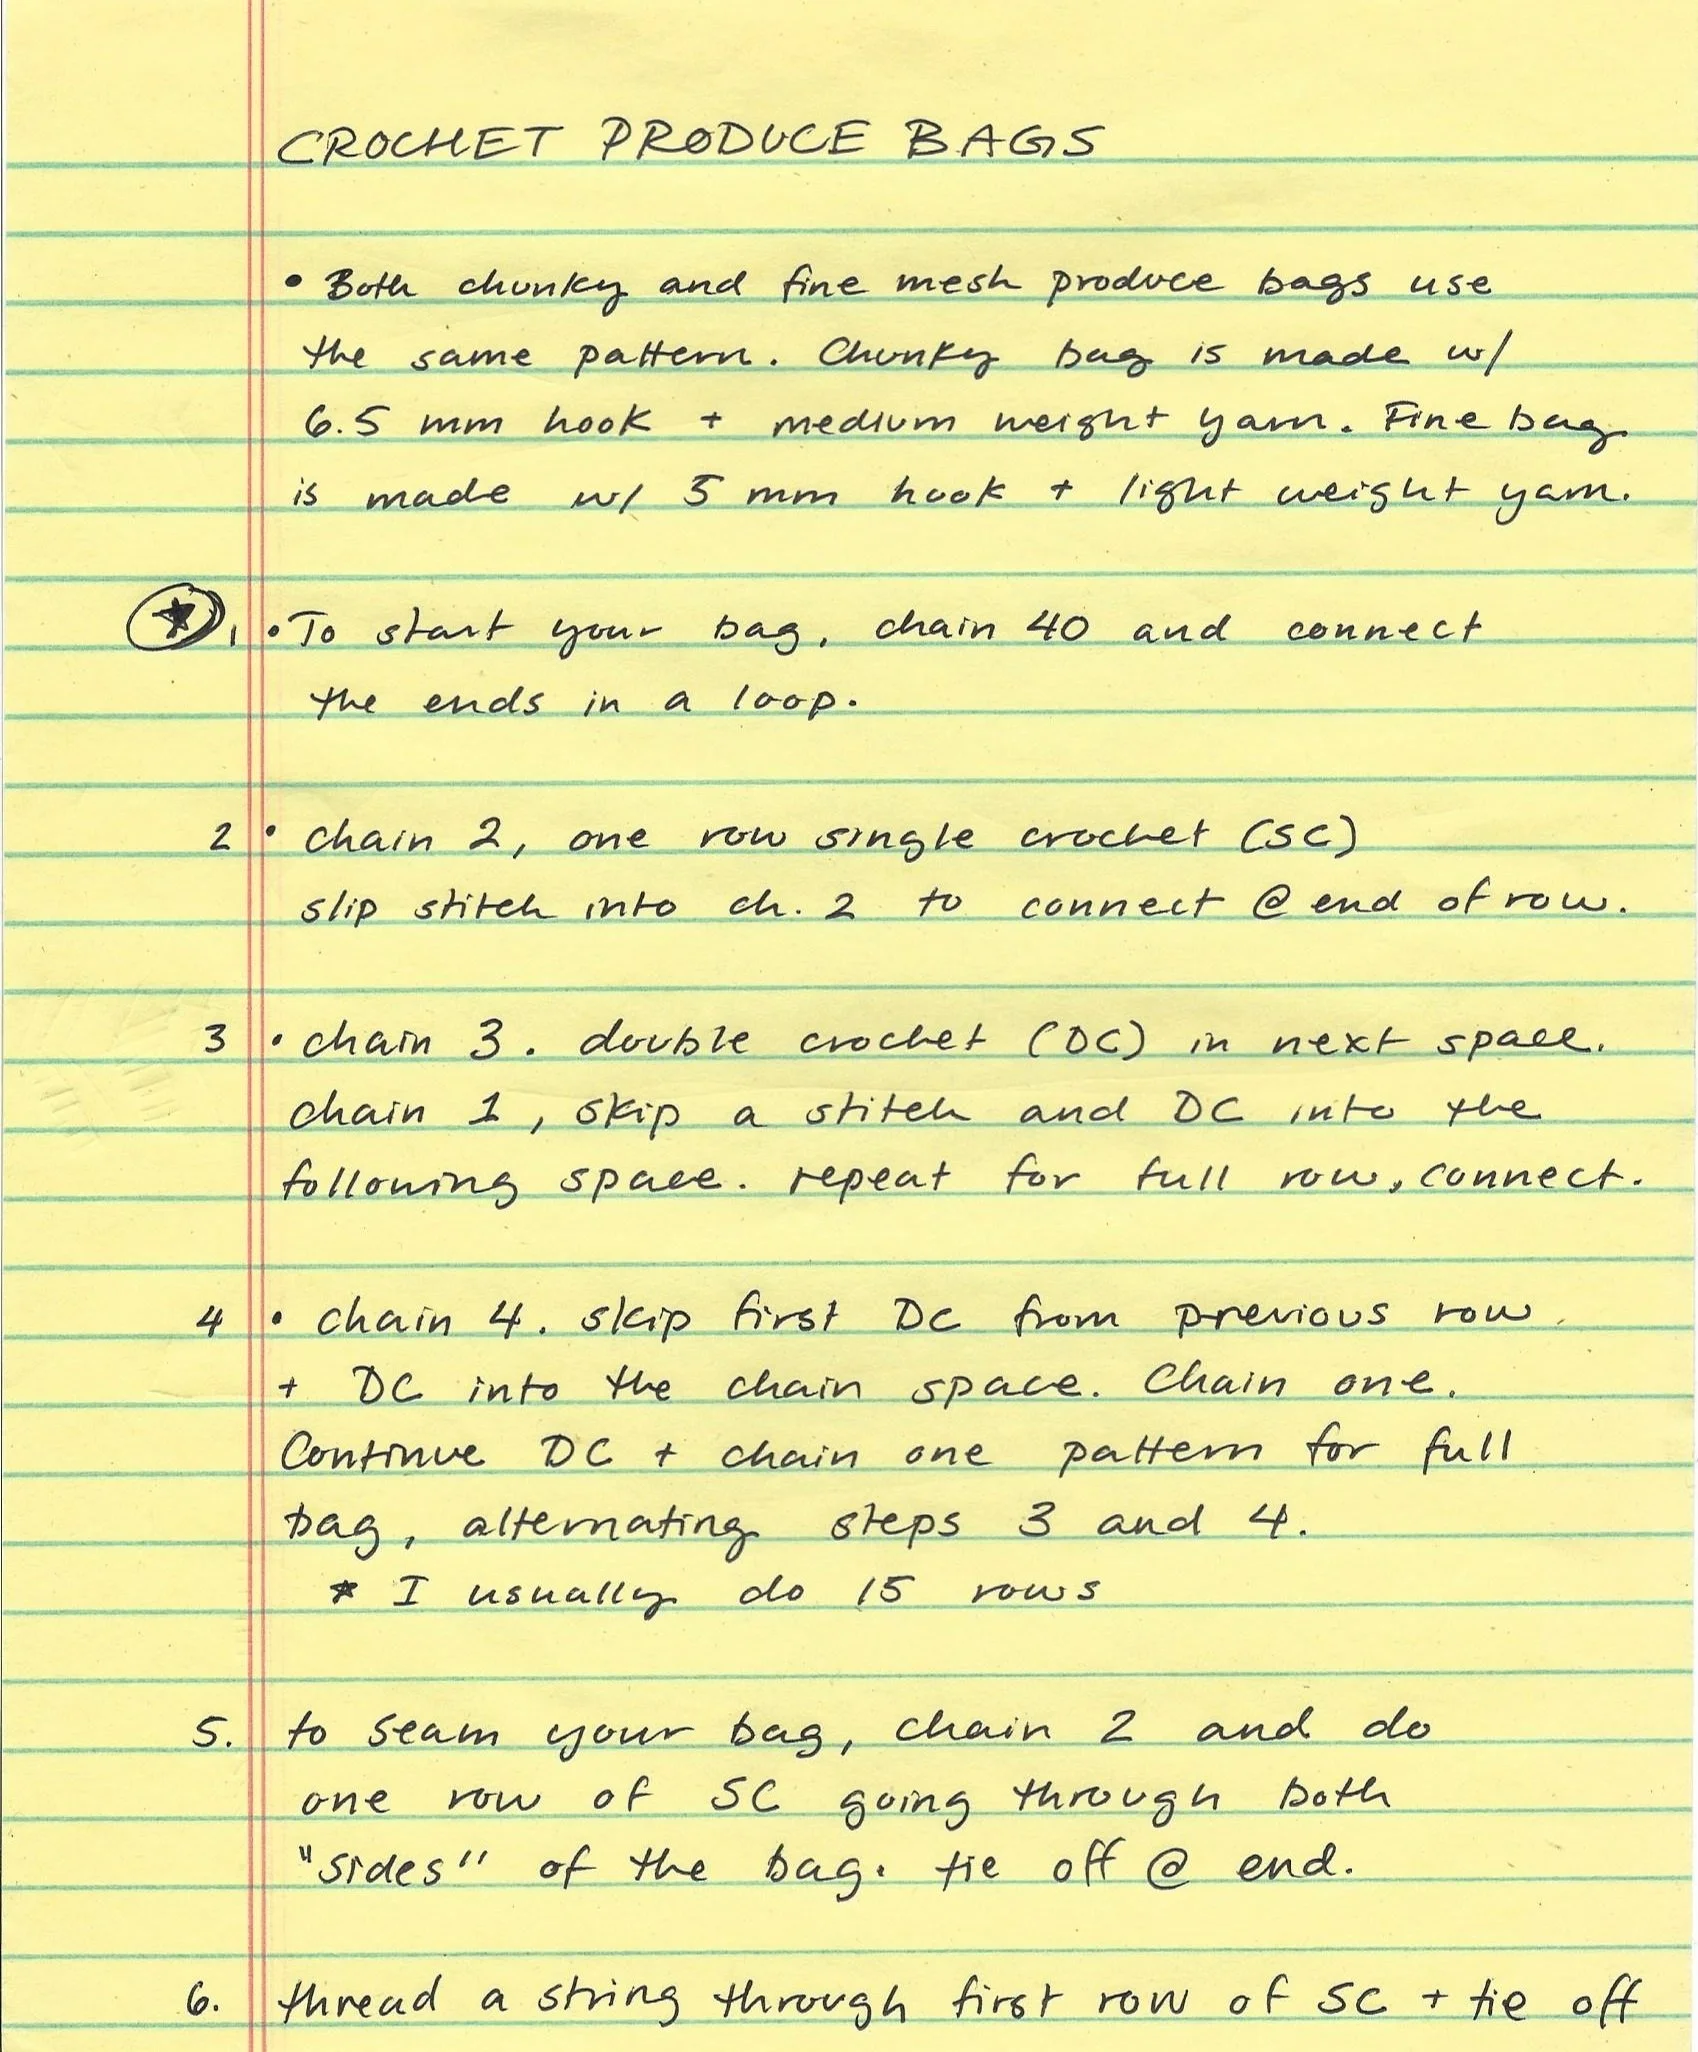 CROCHET PRODUCE BAGS
• Both chunky and fine mesh produce bags use
the same pattern. Chunky bag is made w/
6.5 mm hook + medium weight yarn. Fine bag
is made w/ 5 mm hook + light weight yarn.
★ 1 • To start your bag, chain 40 and connect
the ends in a loop.
2 • chain 2, one row single crochet (SC)
slip stitch into ch. 2 to connect @ end of row.
3 • chain 3. double crochet (DC) in next space.
chain 1, skip a stitch and DC into the
following space. repeat for full row, connect.
4 • chain 4. skip first DC from previous row
+ DC into the chain space. Chain one.
Continue DC + chain one pattern for full
bag, alternating steps 3 and 4.
* I usually do 15 rows
5. to seam your bag, chain 2 and do
one row of SC going through both
"sides" of the bag. tie off @ end.
6. thread a string through first row of SC + tie off